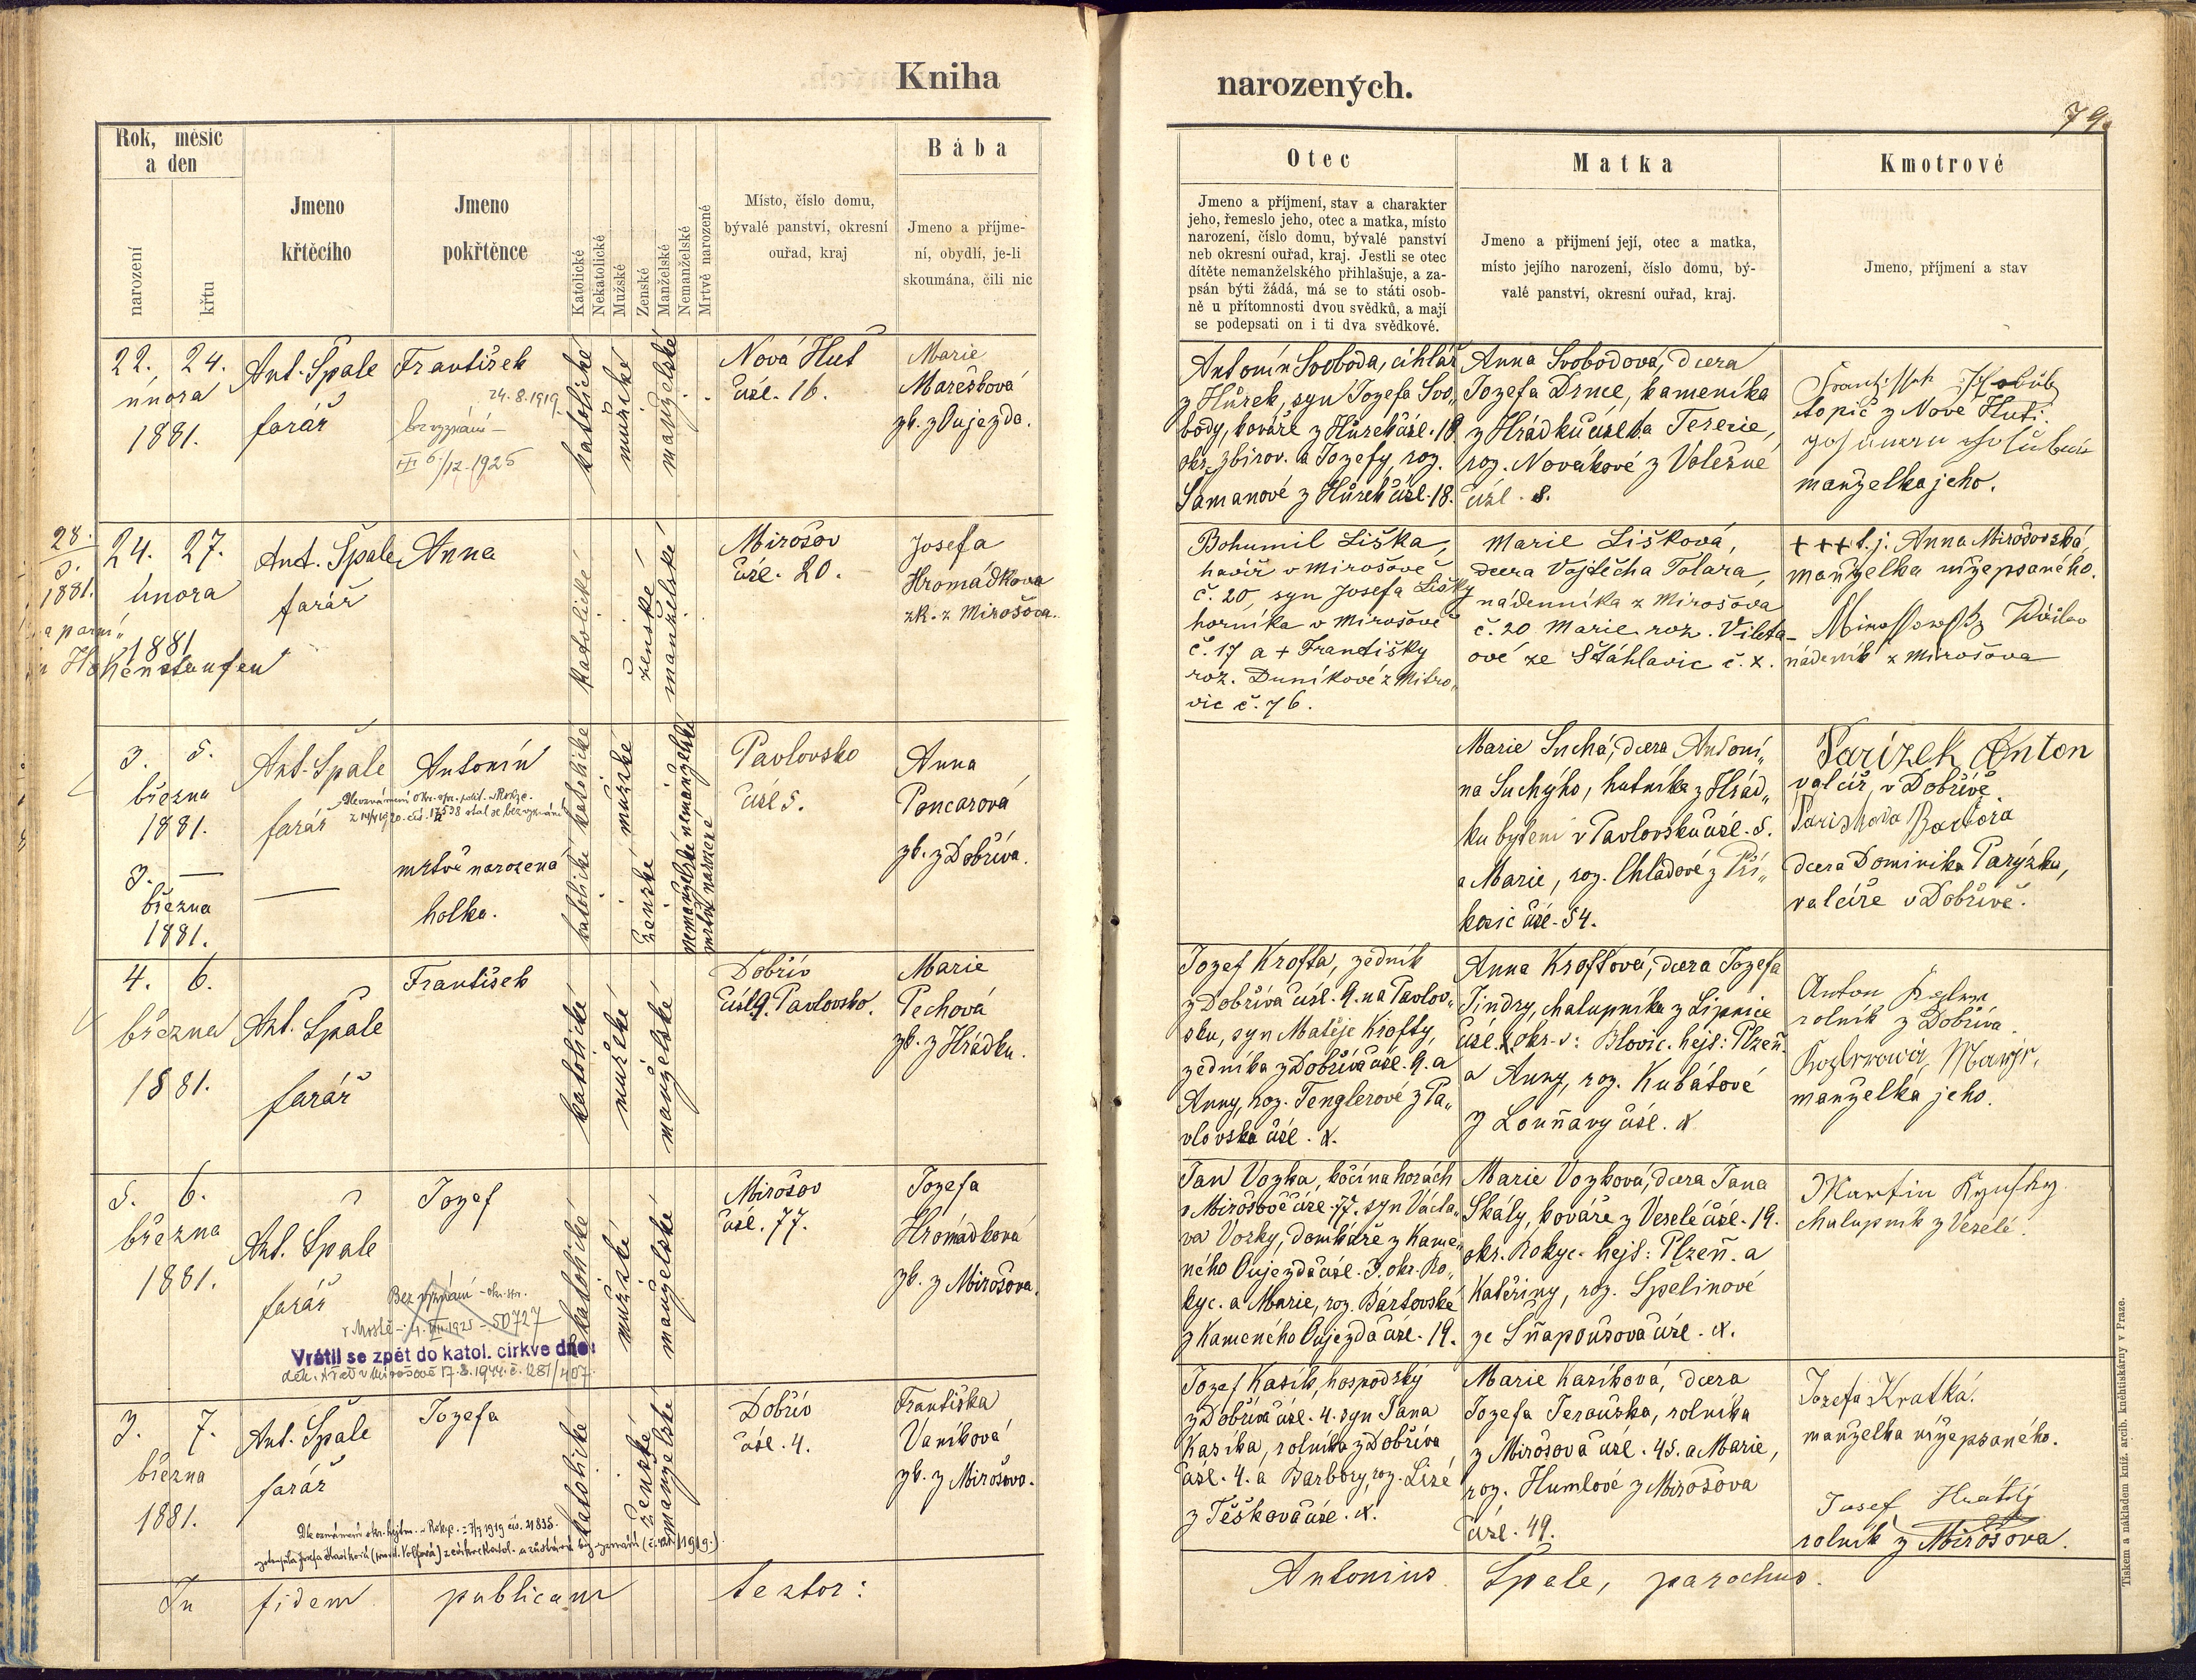 Kniha
narozených.
79.
Rok, měsíc
a den
narození
křtu
Jmeno
křtěcího
Jmeno
pokřtěnce
Katolické
Nekatolické
Mužské
Ženské
Manželské
Nemanželské
Mrtvě narozené
Místo, číslo domu,
bývalé panství, okresní
ouřad, kraj
Bába
Jmeno a příjme-
ní, obydlí, je-li
skoumána, čili nic
Otec
Jmeno a příjmení, stav a charakter
jeho, řemeslo jeho, otec a matka, místo
narození, číslo domu, bývalé panství
neb okresní ouřad, kraj. Jestli se otec
dítěte nemanželského přihlašuje, a za-
psán býti žádá, má se to státi osob-
ně u přítomnosti dvou svědků, a mají
se podepsati on i ti dva svědkové.
Matka
Jmeno a přijmení její, otec a matka,
místo jejího narození, číslo domu, bý-
valé panství, okresní ouřad, kraj.
Kmotrové
Jmeno, příjmení a stav
22. 24.
února
1881.
Ant. Špale
farář
František
24.8.1919
bez vyznání
6/12 1925
katolické
mužské
manželské
Nová Huť
čísl. 16.
Marie
Marešková
zk. z Oujezda.
Antonín Svoboda, cihlář
z Hůrek, syn Jozefa Svo„
body, kováře z Hůrek čísl. 18
okr. zbirov. a Jozefy, roz.
Šamanové z Hůrek čísl. 18.
Anna Svobodová, dcera
Jozefa Drnce, kameníka
z Hrádku čísl. a Terezie,
roz. Novákové z Volešné
čísl. 8.
František Holub
topič z Nové Huti.
manželka jeho.
28.
5.
1881.
Hohenstaufen
24. 27.
února
1881
Ant. Špale
farář
Anna
katolické
ženské
manželské
Mirošov
čísl. 20.
Josefa
Hromádkova
zk. z Mirošova.
Bohumil Liška,
havíř v Mirošově
č. 20, syn Josefa Lišky
horníka v Mirošově
č. 17 a + Františky
roz. Duníkové z Mitro„
vic č. 76.
Marie Lišková,
dcera Vojtěcha Tolara,
nádenníka z Mirošova
č. 20 Marie roz. Vileta-
ové ze Štáhlavic č. x.
+++ t.j. Anna Mirošovská,
manželka nížepsaného.
Mirossowský Wáclav
nádenník z Mirošova
3. 5.
března
1881.
Ant. Špale
farář
Antonín
katolické
mužské
nemanželské
Pavlovsko
čísl 5.
Anna
Poncarová
zk. z Dobříva.
Marie Suchá, dcera Antoní„
na Suchýho, hutníka z Hrád„
ku bytem v Pavlovsku čísl. 5.
a Marie, roz. Chládové z Pří„
kosic čísl. 54.
Parízek Anton
valcíř, v Dobřívě.
Pariskova Barbora
dcera Dominika Parýzka,
valcíře v Dobřívě.
3. —
března
1881.
mrtvě narozená
holka.
katolické
ženské
nemanželské
mrtvě narozené
4. 6.
března
1881.
Ant. Špale
farář
František
katolické
mužské
manželské
Dobřív
čísl. 9. Pavlovsko.
Marie
Pechová
zk. z Hrádku.
Jozef Krofta, zedník
z Dobříva čísl. 9. na Pavlov„
sku, syn Matěje Krofty,
zedníka z Dobříva čísl. 9. a
Anny, roz. Tenglerové z Pa„
vlovska čísl. x.
Anna Kroftová, dcera Jozefa
Jindry, chalupníka z Lipnice
čísl. x okr. v: Blovic. hejt: Plzeň.
a Anny, roz. Kubátové
z Louňavy čísl. x
Anton
rolník z Dobříva.
manželka jeho.
5. 6.
března
1881.
Ant. Špale
farář
Jozef
Bez vyznání - okr. spr.
v Mostě - 1925 - 50727
Vrátil se zpět do katol. církve dne:
děk. úřad v Mirošově 17.8.1944 č. 1281/407.
katolické
mužské
manželské
Mirošov
čísl. 77.
Jozefa
Hromádková
zk. z Mirošova.
Jan Vozka, kočí na horách
v Mirošově čísl. 77. syn Václa„
va Vozky, domkáře z Kame„
ného Oujezda čísl. 3. okr. Ro„
kyc. a Marie, roz. Bártovské
z Kameného Oujezda čísl. 19.
Marie Vozková, dcera Jana
Skály, kováře z Veselé čísl. 19.
okr. Rokyc. hejt: Plzeň. a
Kateřiny, roz. Špelinové
ze Šňapoušova čísl. x.
Martin
chalupník z Veselé.
3. 7.
března
1881.
Ant. Špale
farář
Jozefa
katolické
ženské
manželské
Dobřív
čísl. 4.
Františka
Vaníková
zk. z Mirošova.
Jozef Kasík, hospodský
z Dobříva čísl. 4. syn Jana
Kasíka, rolníka z Dobříva
čísl. 4. a Barbory, roz. Lizé
z Těškova čísl. x.
Marie Kasíková, dcera
Jozefa Beroušska, rolníka
z Mirošova čísl. 45. a Marie,
roz. Humlové z Mirošova
čísl. 49.
Jozefa Kratká.
manželka nížepsaného.
Jusef Kratký
rolník z Mirošova.
In fidem publicam testor:
Antonius Špale, parochus.
Tiskem a nákladem kníž. arcib. knihtiskárny v Praze.